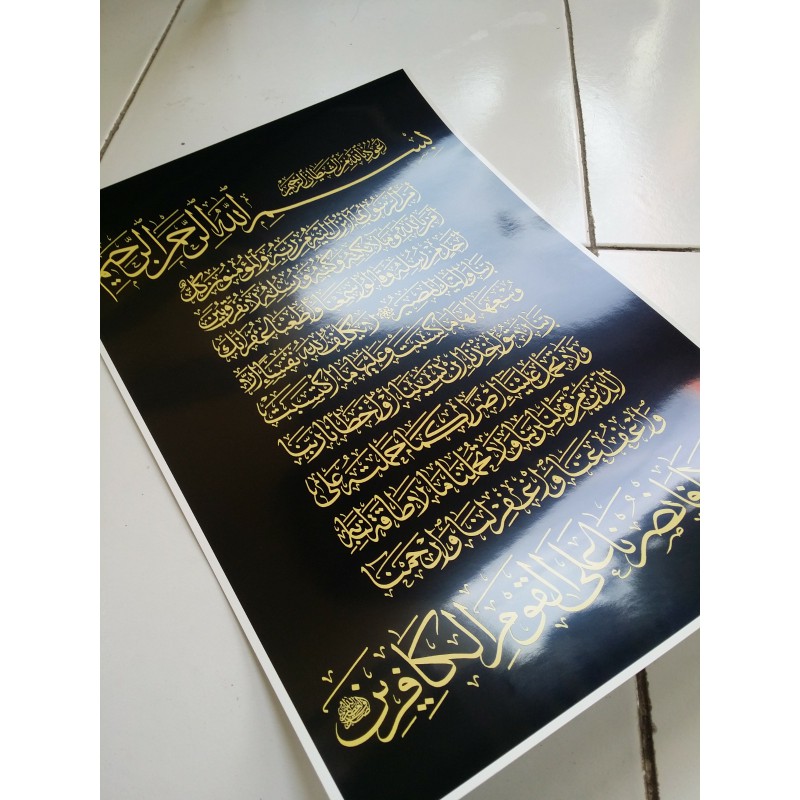 أعوذ بالله من الشيطان الرجيم
بسم الله الرحمن الرحيم
آمن الرسول بما أنزل إليه من ربه والمؤمنون كل
آمن بالله وملائكته وكتبه ورسله لا نفرق بين
أحد من رسله وقالوا سمعنا وأطعنا غفرانك
ربنا وإليك المصير لا يكلف الله نفسا إلا
وسعها لها ما كسبت وعليها ما اكتسبت
ربنا لا تؤاخذنا إن نسينا أو أخطأنا ربنا
ولا تحمل علينا إصرا كما حملته على
الذين من قبلنا ربنا ولا تحملنا ما لا طاقة لنا به
واعف عنا واغفر لنا وارحمنا
فانصرنا على القوم الكافرين